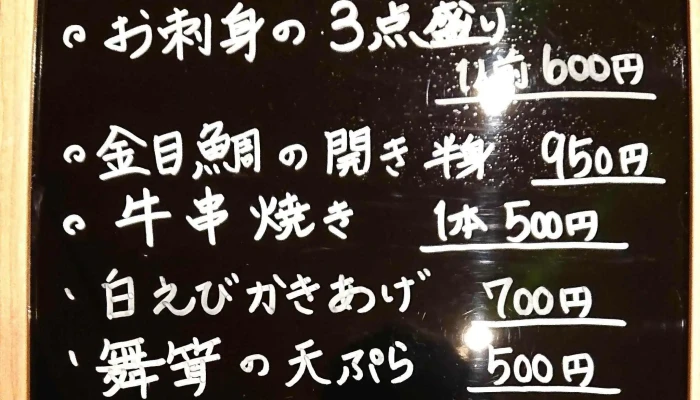 お刺身の3点盛り
1人前 600円
金目鯛の開き 半身 950円
牛串焼き 1本 500円
白えびかきあげ 700円
舞茸の天ぷら 500円